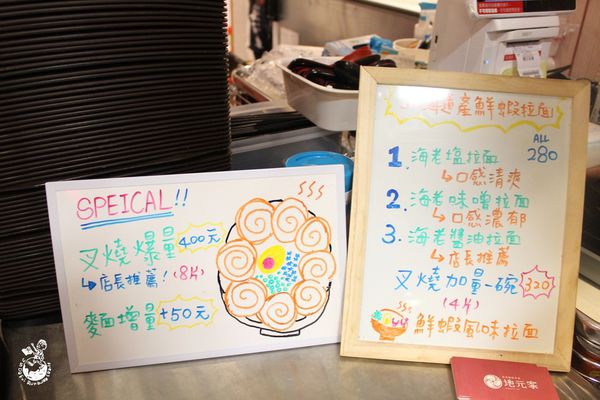 SPEICAL!!
叉燒爆量 400元
↳店長推薦! (8片)
麵增量 +50元
海道産鮮蝦拉面
ALL
280
1. 海老塩拉面
↳口感清爽
2. 海老味噌拉面
↳口感濃郁
3. 海老醬油拉面
↳店長推薦
叉燒加量一碗 320
(4片)
鮮蝦風味拉面
地元家